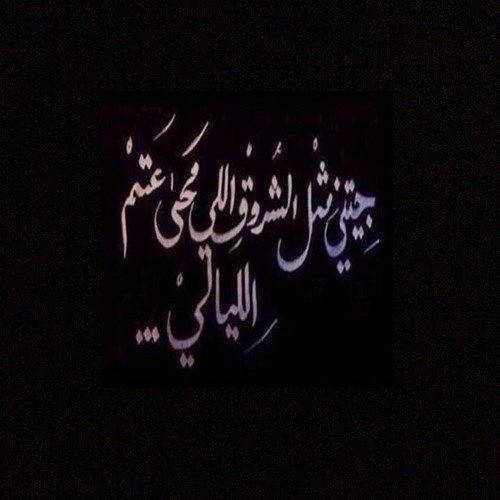 جِيتني مثْل الشُروْق اللي مَحىٰ عَتمْ
الليالِيْ ...